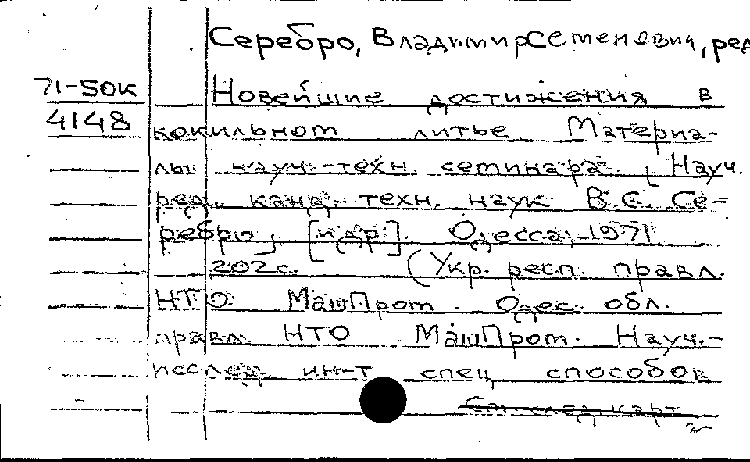 Серебро, Владимир Семенович, ред
71-50к
4148
Новейшие достижения в
кокильном литье Материа-
лы науч.-техн. семинара. Науч.
ред. канд. техн. наук В.С. Се-
ребро, [и др.]. Одесса, 1971
202 с. (Укр. респ. правл.
НТО МашПром. Одес. обл.
правл. НТО МашПром. Науч.-
исслед. ин-т спец. способов
См след карт